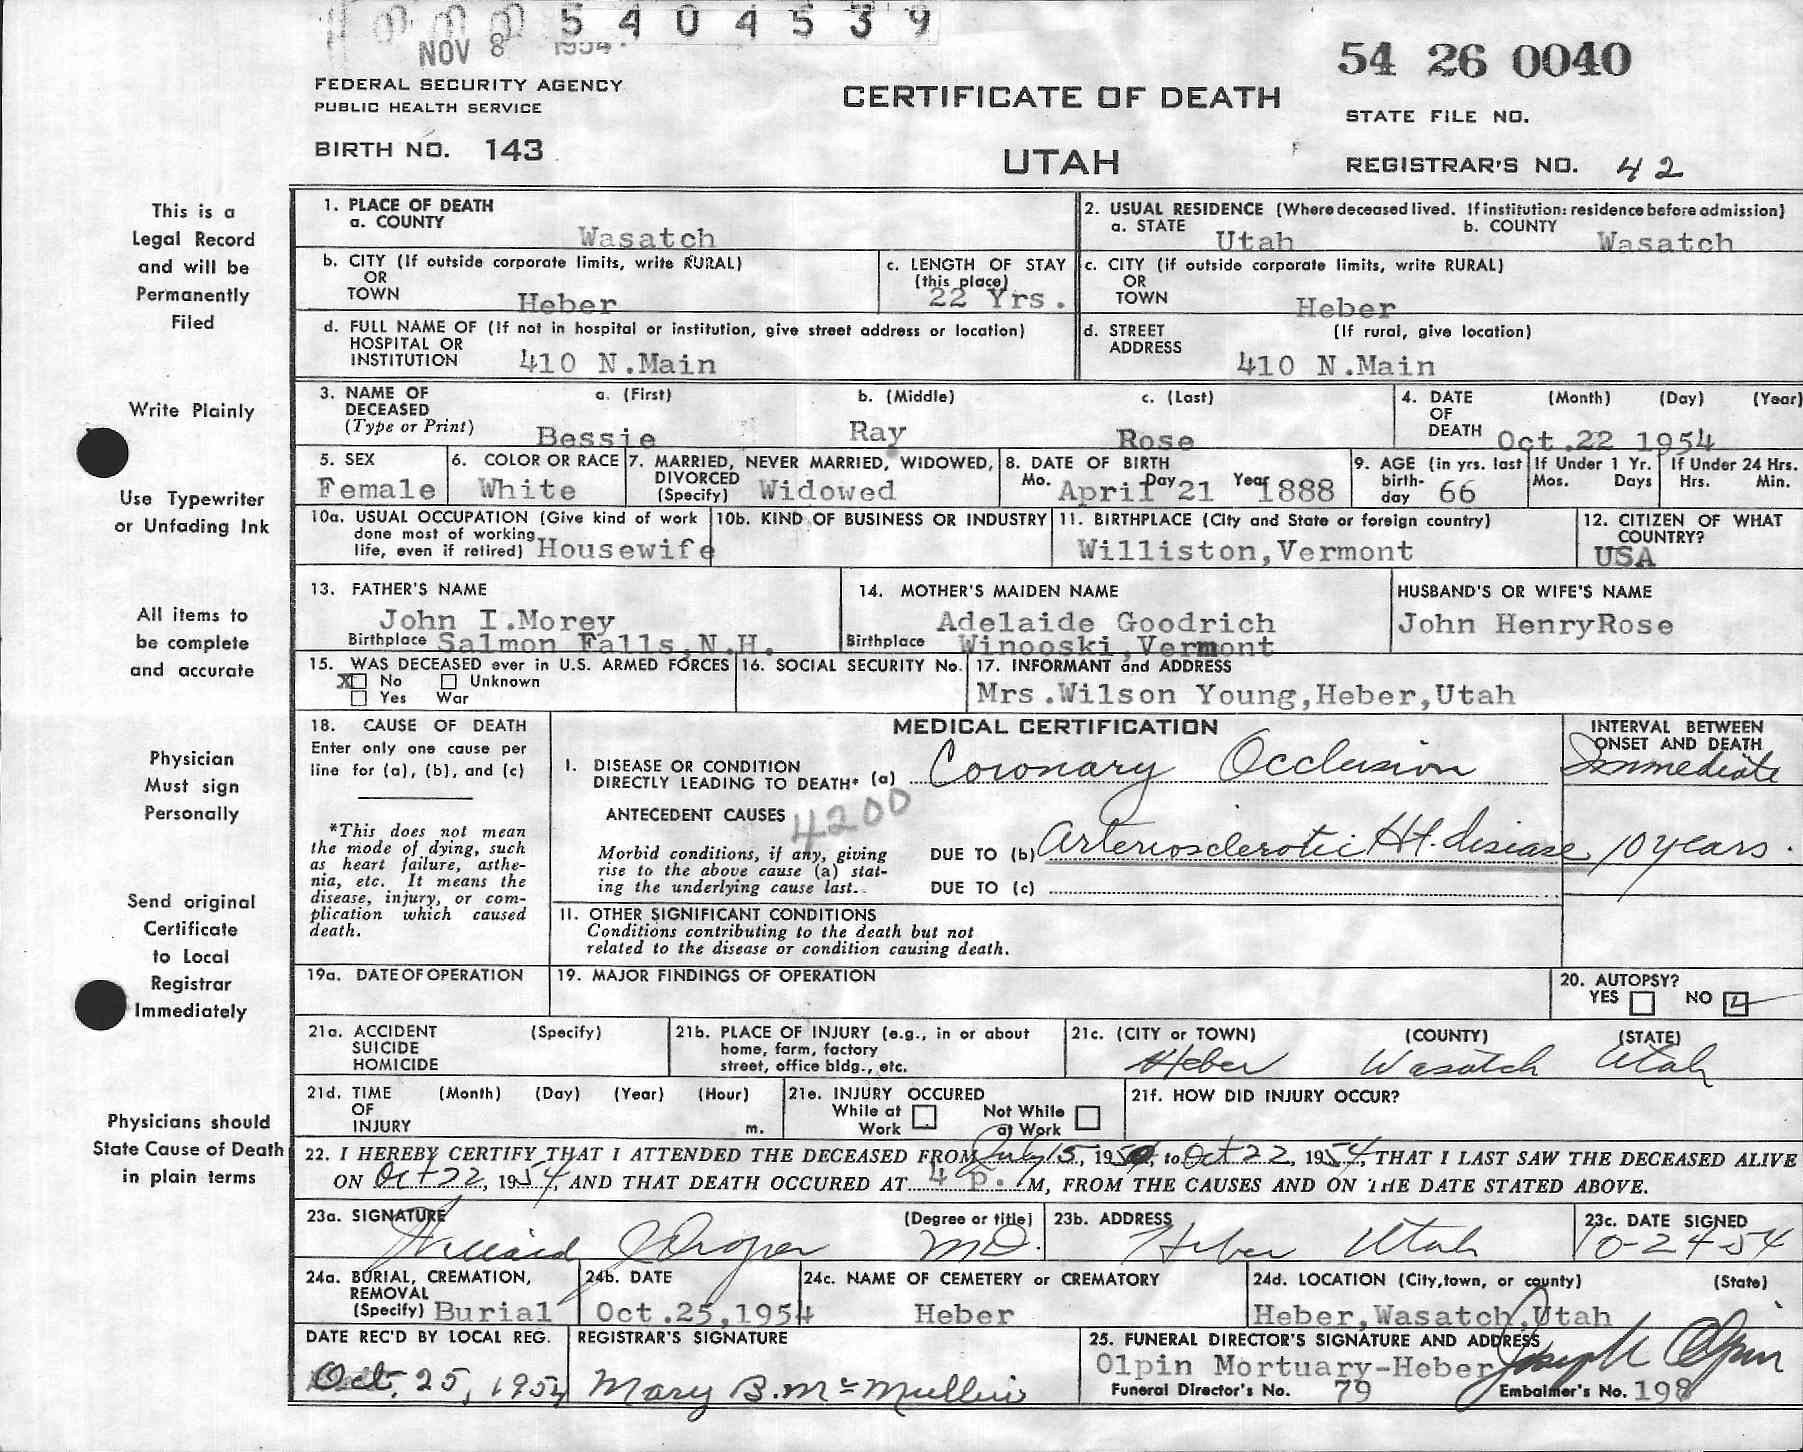 5404539
NOV 8 1954
54 26 0040
FEDERAL SECURITY AGENCY
PUBLIC HEALTH SERVICE
CERTIFICATE OF DEATH
STATE FILE NO.
BIRTH NO. 143
UTAH
REGISTRAR'S NO. 42
This is a
Legal Record
and will be
Permanently
Filed
Write Plainly
Use Typewriter
or Unfading Ink
All items to
be complete
and accurate
Physician
Must sign
Personally
Send original
Certificate
to Local
Registrar
Immediately
Physicians should
State Cause of Death
in plain terms
1. PLACE OF DEATH
a. COUNTY
Wasatch
2. USUAL RESIDENCE (Where deceased lived. If institution: residence before admission)
a. STATE Utah b. COUNTY Wasatch
b. CITY (If outside corporate limits, write RURAL)
OR
TOWN Heber
c. LENGTH OF STAY
(this place)
22 Yrs.
c. CITY (if outside corporate limits, write RURAL)
OR
TOWN Heber
d. FULL NAME OF (If not in hospital or institution, give street address or location)
HOSPITAL OR
INSTITUTION 410 N.Main
d. STREET (If rural, give location)
ADDRESS 410 N.Main
3. NAME OF a. (First) b. (Middle) c. (Last)
DECEASED
(Type or Print) Bessie Ray Rose
4. DATE (Month) (Day) (Year)
OF
DEATH Oct.22 1954
5. SEX
Female
6. COLOR OR RACE
White
7. MARRIED, NEVER MARRIED, WIDOWED,
DIVORCED
(Specify) Widowed
8. DATE OF BIRTH
Mo. Day Year
April 21 1888
9. AGE (in yrs. last
birth-
day 66
If Under 1 Yr.
Mos. Days
If Under 24 Hrs.
Hrs. Min.
10a. USUAL OCCUPATION (Give kind of work
done most of working
life, even if relired) Housewife
10b. KIND OF BUSINESS OR INDUSTRY
11. BIRTHPLACE (City and State or foreign country)
Williston,Vermont
12. CITIZEN OF WHAT
COUNTRY?
USA
13. FATHER'S NAME
John I.Morey
Birthplace Salmon Falls,N.H.
14. MOTHER'S MAIDEN NAME
Adelaide Goodrich
Birthplace Winooski,Vermont
HUSBAND'S OR WIFE'S NAME
John HenryRose
15. WAS DECEASED ever in U.S. ARMED FORCES
X No Unknown
Yes War
16. SOCIAL SECURITY No.
17. INFORMANT and ADDRESS
Mrs.Wilson Young,Heber,Utah
18. CAUSE OF DEATH
Enter only one cause per
line for (a), (b), and (c)
*This does not mean
the mode of dying, such
as heart failure, asthe-
nia, etc. It means the
disease, injury, or com-
plication which caused
death.
MEDICAL CERTIFICATION
INTERVAL BETWEEN
ONSET AND DEATH
I. DISEASE OR CONDITION
DIRECTLY LEADING TO DEATH* (a) Coronary Occlusion Immediate
ANTECEDENT CAUSES 4200
Morbid conditions, if any, giving
rise to the above cause (a) stat-
ing the underlying cause last.
DUE TO (b) Arteriosclerotic Ht. disease 10 years.
DUE TO (c)
II. OTHER SIGNIFICANT CONDITIONS
Conditions contributing to the death but not
related to the disease or condition causing death.
19a. DATE OF OPERATION
19. MAJOR FINDINGS OF OPERATION
20. AUTOPSY?
YES NO
21a. ACCIDENT (Specify)
SUICIDE
HOMICIDE
21b. PLACE OF INJURY (e.g., in or about
home, farm, factory
street, office bldg., etc.
21c. (CITY or TOWN) (COUNTY) (STATE)
Heber Wasatch Utah
21d. TIME (Month) (Day) (Year) (Hour)
OF
INJURY m.
21e. INJURY OCCURED
While at Work Not While at Work
21f. HOW DID INJURY OCCUR?
22. I HEREBY CERTIFY THAT I ATTENDED THE DECEASED FROM July 15, 1950, to Oct 22, 1954, THAT I LAST SAW THE DECEASED ALIVE
ON Oct 22, 1954, AND THAT DEATH OCCURED AT 4 p. M, FROM THE CAUSES AND ON THE DATE STATED ABOVE.
23a. SIGNATURE (Degree or title)
M.D.
23b. ADDRESS
Heber Utah
23c. DATE SIGNED
10-24-54
24a. BURIAL, CREMATION,
REMOVAL
(Specify) Burial
24b. DATE
Oct.25,1954
24c. NAME OF CEMETERY or CREMATORY
Heber
24d. LOCATION (City,town, or county) (State)
Heber,Wasatch,Utah
DATE REC'D BY LOCAL REG.
Oct. 25, 1954
REGISTRAR'S SIGNATURE
Mary B. McMullin
25. FUNERAL DIRECTOR'S SIGNATURE AND ADDRESS
Olpin Mortuary-Heber Joseph Olpin
Funeral Director's No. 79 Embalmer's No. 198